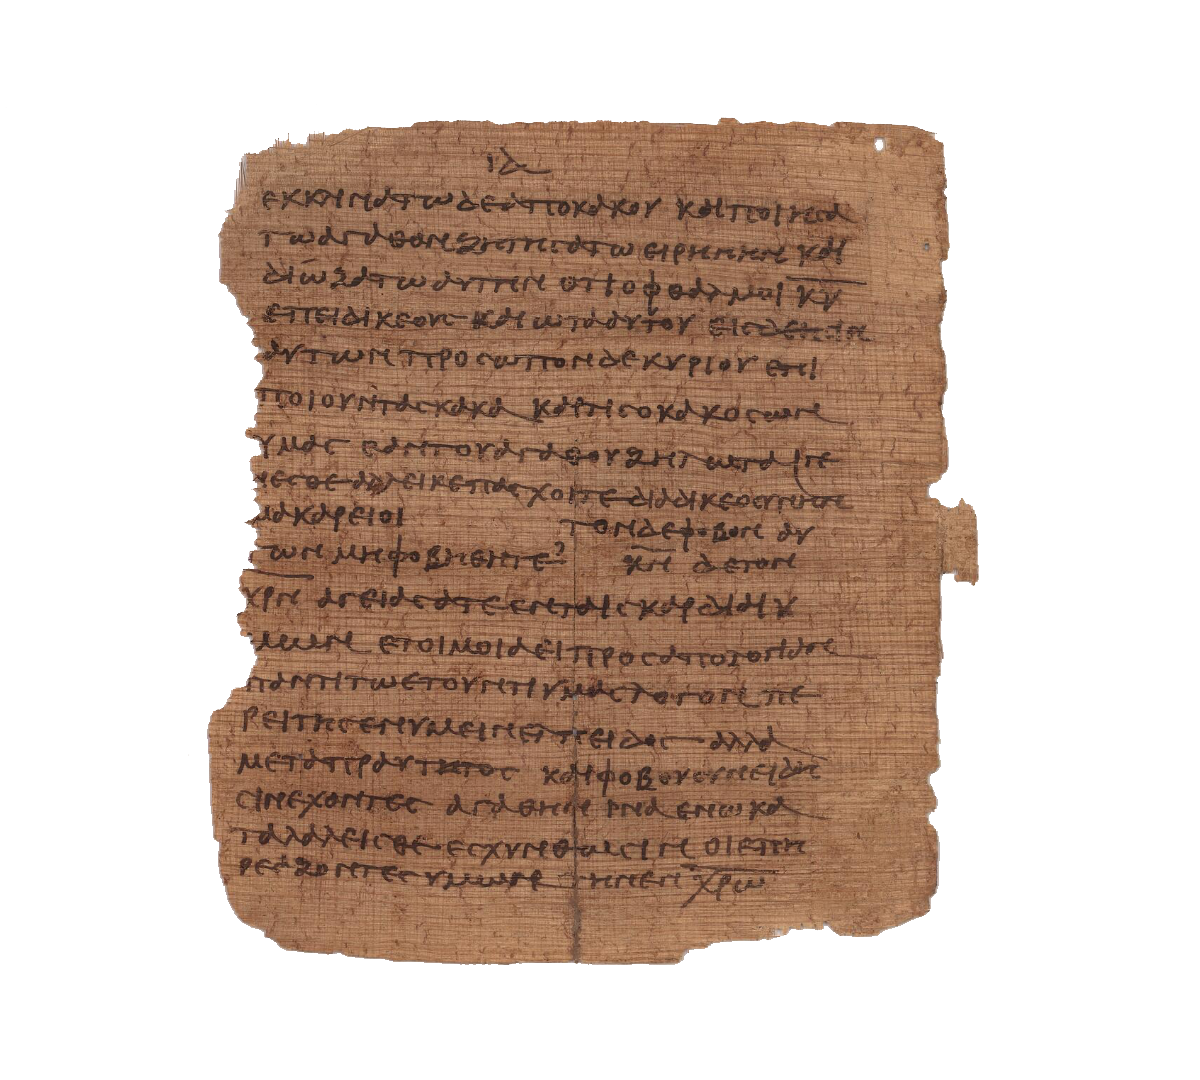 ιδ
εκκλινατω δε απο κακου και ποιησα
τω αγαθον ζητησατω ειρηνην και
διωξατω αυτην οτι οφθαλμοι κυ
επει δικεους και ωτα αυτου εις δεησιν
αυτων προσωπον δε κυριου επι
ποιουντας κακα και τις ο κακοσων
υμας εαν του αγαθου ζηλωται
νεσθε αλλ ει κε πασχοιτε δια δικεοσυνην
μακαρειοι τον δε φοβον αυ
των μη φοβηθητε κν δε τον
χρν αγειασατε εν ταις καρδιαι υ
μων ετοιμοι αει προς απολογιαν
παντι τω ετουντι υμας λογον πε
ρει της εν υμειν ελπειδος αλλα
μετα πραυτητος και φοβου συνειδη
σιν εχοντες αγαθην ινα εν ω κα
ταλαλεισθε εσχυνθωσιν οι επη
ρεαζοντες υμων την εν χρω